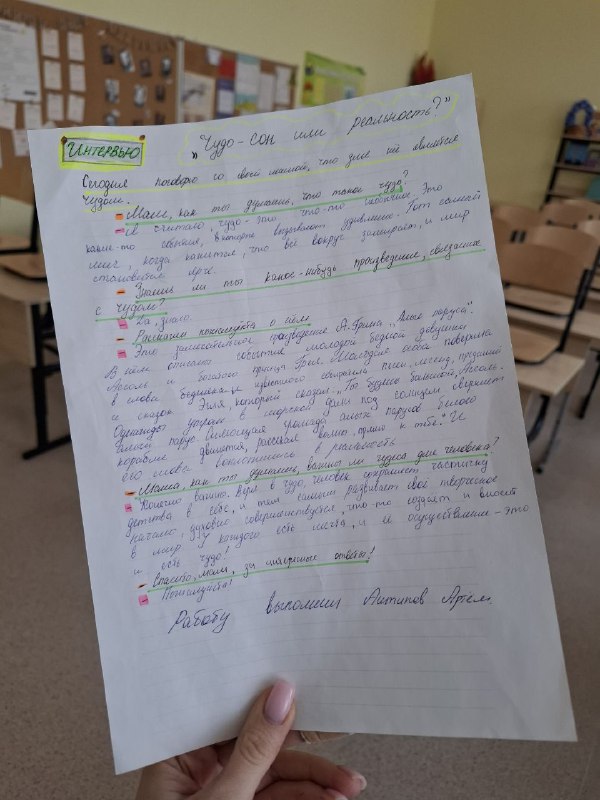 Интервью
"Чудо-сон или реальность?"
Сегодня поговорю со своей мамой, что для неё является
чудом.
- Мам, как ты думаешь, что такое чудо?
- Я считаю, чудо-это что-то необычное. Это
какие-то события, которые вызывают удивление. Тот самый
миг, когда кажется, что всё вокруг замирает, и мир
становится ярче.
- Знаешь ли ты какое-нибудь произведение, связанное
с чудом?
- Да, знаю.
- Расскажи пожалуйста о нём.
- Это замечательное произведение А.Грина "Алые паруса".
В нём описаны события молодой бедной девушки
Ассоль и богатого принца Грея. Молодая особа поверила
в слова известного собирателя песен, легенд, преданий
и сказок Эгля, который сказал: "Ты будешь большой, Ассоль.
Однажды утром в морской дали под солнцем сверкнет
алый парус. Сияющая громада алых парусов белого
корабля двинется, рассекая волны, прямо к тебе". И
его слова воплотились в реальность
- Мама, как ты думаешь, важны ли чудеса для человека?
- Конечно важны. Веря в чудо, человек сохраняет частичку
детства в себе, и тем самым развивает своё творческое
начало, духовно совершенствуется, что-то создаёт и вносит
в мир. У каждого есть мечта, и её осуществление-это
и есть чудо!
- Спасибо, мам, за интересные ответы!
- Пожалуйста!
Работу выполнил Антипов Артём.